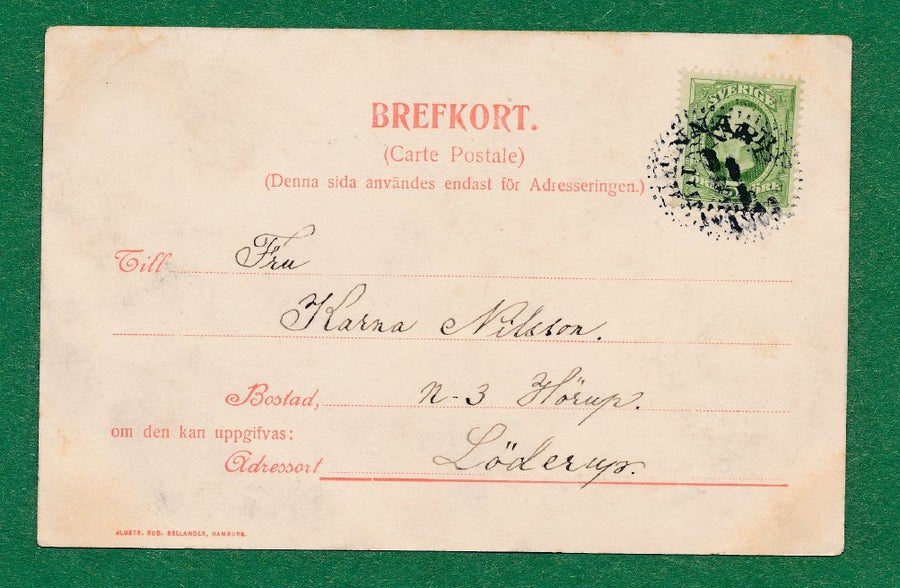 BREFKORT.
(Carte Postale)
(Denna sida användes endast för Adresseringen.)
SVERIGE
ÖRE
Till Fru
Karna Nilsson.
Bostad, N-3 Hörup.
om den kan uppgifvas:
Adressort Löderup.
JLUSTR. RUD. BELLANDER, HAMBURG.